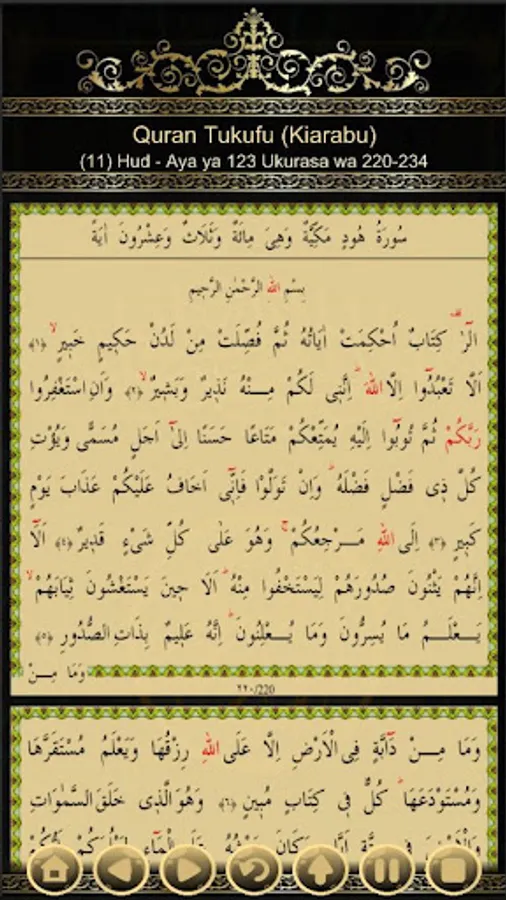 Quran Tukufu (Kiarabu)
(11) Hud - Aya ya 123 Ukurasa wa 220-234
سُورَةُ هُودٍ مَكِّيَّةٌ وَهِىَ مِائَةٌ وَثَلَاثٌ وَعِشْرُونَ اٰيَةً
بِسْمِ اللهِ الرَّحْمٰنِ الرَّحِيمِ
الٓرٰ ۠ كِتَابٌ اُحْكِمَتْ اٰيَاتُهُ ثُمَّ فُصِّلَتْ مِنْ لَدُنْ حَكِيمٍ خَبِيرٍۙ ﴿١﴾
اَلَّا تَعْبُدُٓوا اِلَّا اللهَؕ اِنَّنِى لَكُمْ مِنْهُ نَذِيرٌ وَبَشِيرٌۙ ﴿٢﴾ وَاَنِ اسْتَغْفِرُوا
رَبَّكُمْ ثُمَّ تُوبُٓوا اِلَيْهِ يُمَتِّعْكُمْ مَتَاعًا حَسَنًا اِلٰٓى اَجَلٍ مُسَمًّى وَيُؤْتِ
كُلَّ ذِى فَضْلٍ فَضْلَهُؕ وَاِنْ تَوَلَّوْا فَاِنِّٓى اَخَافُ عَلَيْكُمْ عَذَابَ يَوْمٍ
كَبِيرٍ ﴿٣﴾ اِلَى اللهِ مَرْجِعُكُمْۚ وَهُوَ عَلٰى كُلِّ شَىْءٍ قَدِيرٌ ﴿٤﴾ اَلَٓا
اِنَّهُمْ يَثْنُونَ صُدُورَهُمْ لِيَسْتَخْفُوا مِنْهُؕ اَلَا حِينَ يَسْتَغْشُونَ ثِيَابَهُمْۙ
يَعْلَمُ مَا يُسِرُّونَ وَمَا يُعْلِنُونَؕ اِنَّهُ عَلِيمٌ بِذَاتِ الصُّدُورِ ﴿٥﴾
وَمَا مِنْ
٢٢٠/220
وَمَا مِنْ دَٓابَّةٍ فِى الْاَرْضِ اِلَّا عَلَى اللهِ رِزْقُهَا وَيَعْلَمُ مُسْتَقَرَّهَا
وَمُسْتَوْدَعَهَاؕ كُلٌّ فِى كِتَابٍ مُبِينٍ ﴿٦﴾ وَهُوَ الَّذِى خَلَقَ السَّمٰوَاتِ